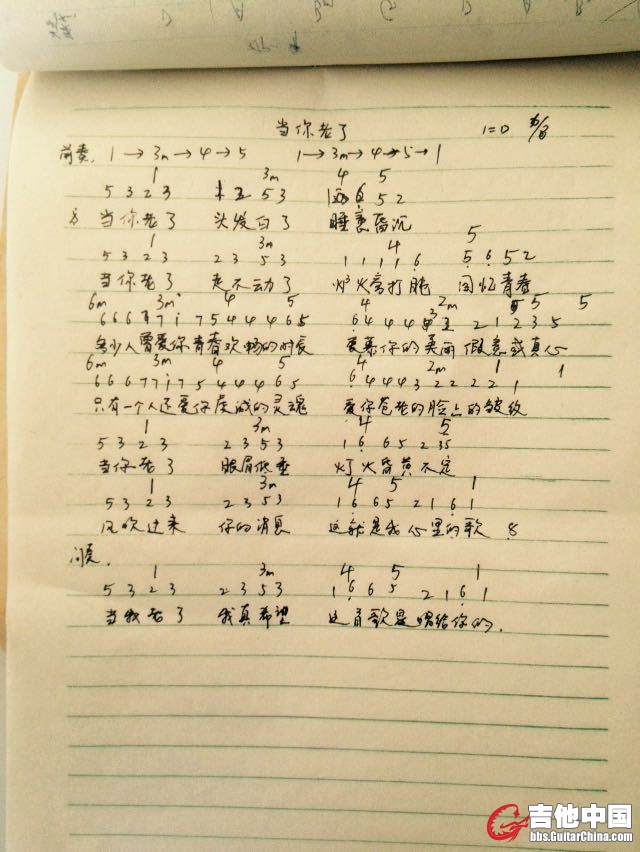 当你老了 1=D
前奏. 1→3m→4→5 1→3m→4→5→1
1 3m 4 5
5 3 2 3 5 3 1 6 5 2
当你老了 头发白了 睡意昏沉
1 3m 4 5
5 3 2 3 2 3 5 3 1 1 1 1 6 5 6 5 2
当你老了 走不动了 炉火旁打盹 回忆青春
6m 3m 4 5 4 2m 5 5
6 6 6 7 7 1 7 5 4 4 4 6 5 6 4 4 4 2 1 2 3 5
多少人曾爱你青春欢畅的时辰 爱慕你的美丽 假意或真心
6m 3m 4 5 4 2m 1 1
6 6 6 7 7 1 7 5 4 4 4 6 5 6 4 4 4 3 2 2 2 2 1 1
只有一个人还爱你虔诚的灵魂 爱你苍老的脸上的皱纹
1 3m 4 5
5 3 2 3 2 3 5 3 1 6 6 5 2 35
当你老了 眼眉低垂 灯火昏黄不定
1 3m 4 5 1
5 3 2 3 2 3 5 3 1 6 6 5 2 1 6 1
风吹过来 你的消息 这就是我心里的歌
间奏.
1 3m 4 5 1
5 3 2 3 2 3 5 3 1 6 6 5 2 1 6 1
当我老了 我真希望 这首歌是唱给你的.
吉他中国
bbs.GuitarChina.com